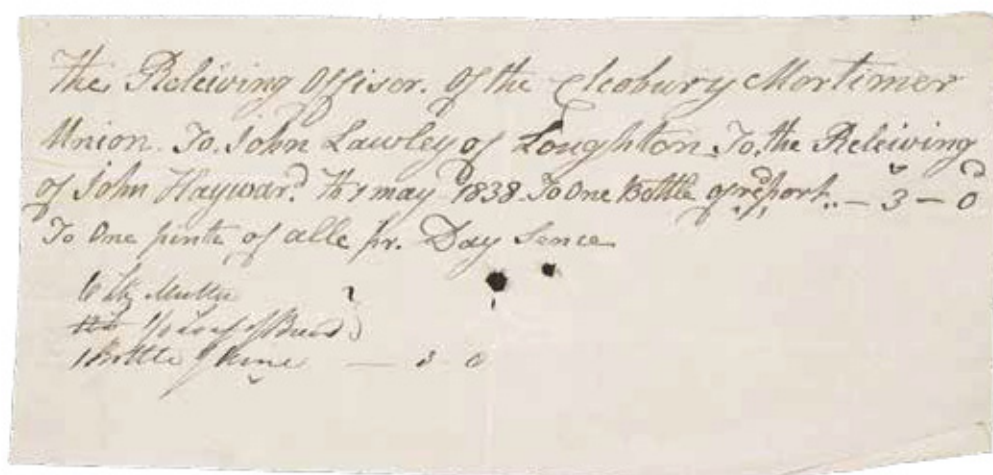 The Releiving Offisor. Of the Cleobury Mortimer
Union. To. John Lawley of Loughton. To, the Releiving
of John Haywar.d may 1838 To One Bottle of port.. — 3 — 0
To One pinte of alle pr. Day Sence
6 lb Mutton
Loaf of Bread
1 Bottle of Wine — 3 0